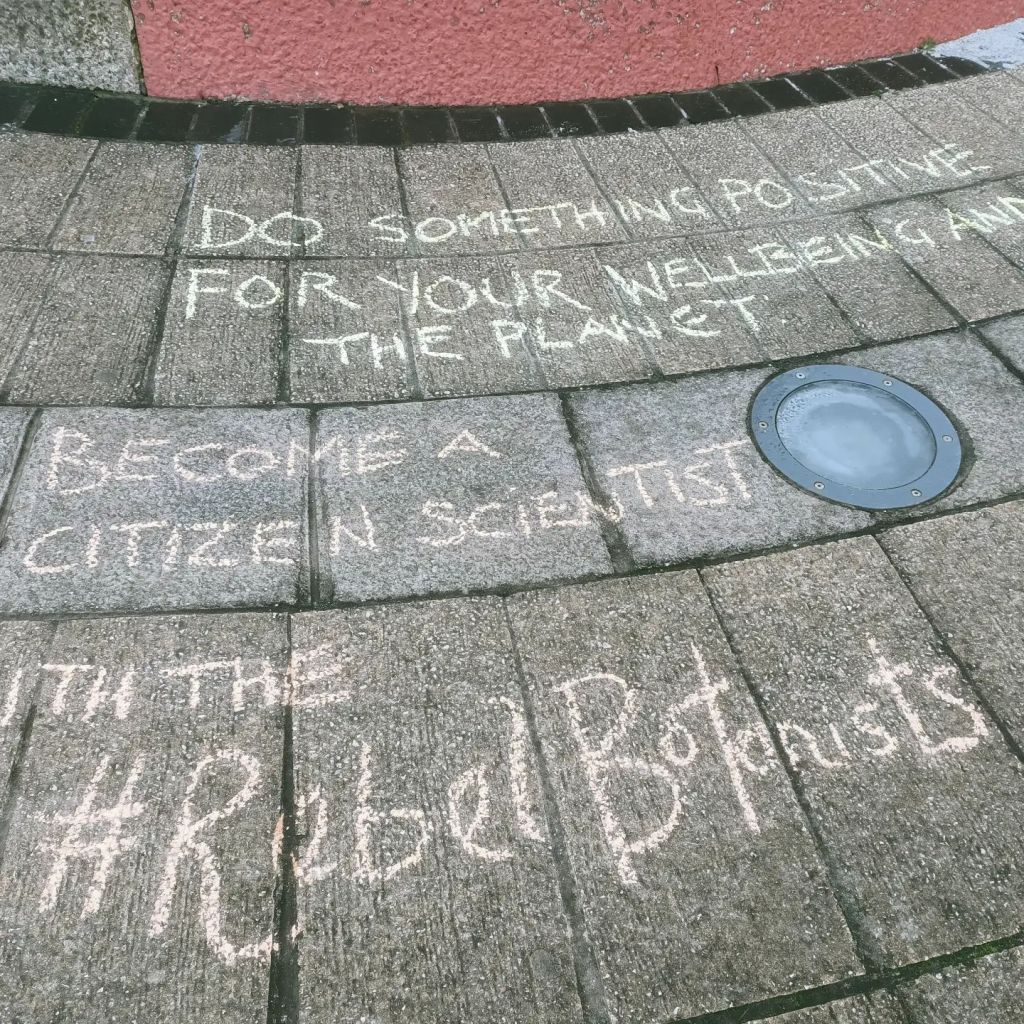 DO SOMETHING POSITIVE
FOR YOUR WELLBEING AND
THE PLANET.
BECOME A
CITIZEN SCIENTIST
WITH THE
#RebelBotanists